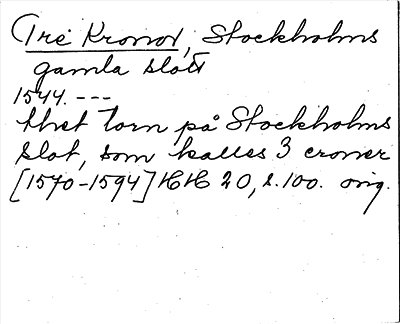 Tre Kronor, Stockholms
gamla slott
1544. ---
thet torn på Stockholms
slot, som kalles 3 croner
[1570-1594] HH 20, s. 100. orig.